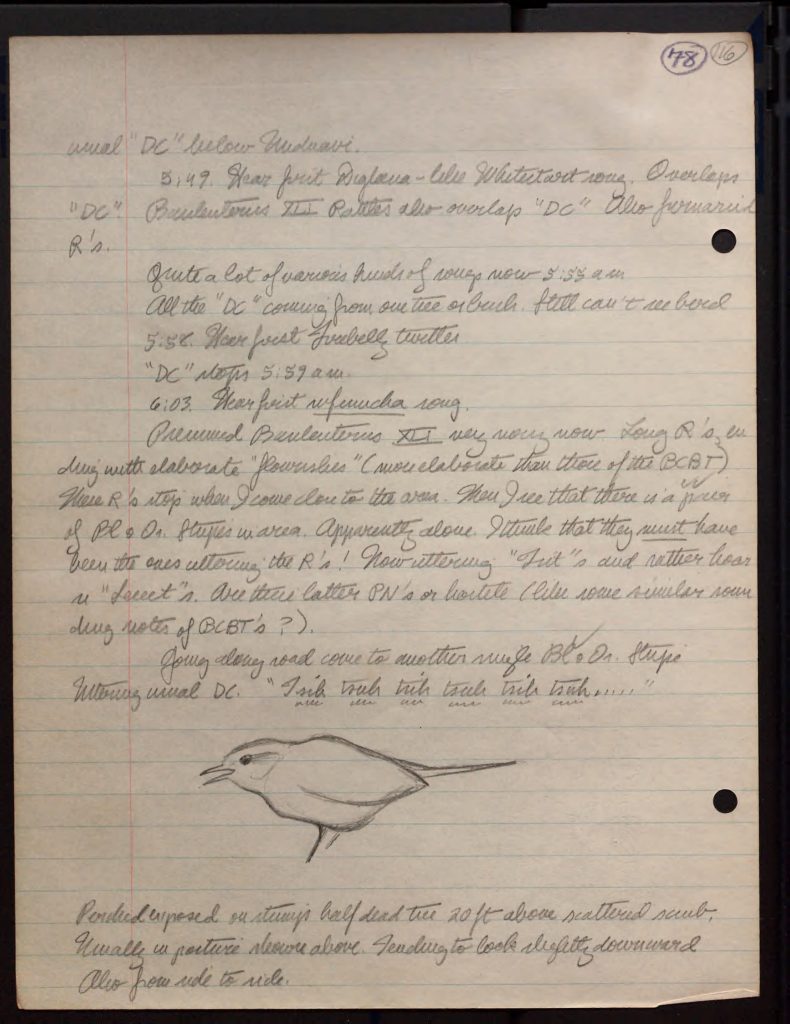 78 116
usual "DC" below Unduavi.
5:49. Hear first Diglossa-like Whitestart song. Overlaps
"DC". Basileuterus XII Rattles also overlap "DC" Also furnariid
R's.
Quite a lot of various kinds of songs now 5:55 am
All the "DC" coming from one tree or bush. Still can't see bird
5:58. Hear first twitter
"DC" stops 5:59 am.
6:03. Hear first song.
Presumed Basileuterus XII very noisy now. Long R's, en
ding with elaborate "flourishes" (more elaborate than those of the BCBT)
These R's stop when I come close to the area. Then I see that there is a pair
of Bl o Or. Stripes in area. Apparently alone. I think that they must have
been the ones uttering the R's! Now uttering "Tsit"s and rather hoar
se Are these latter PN's or hostile (like some similar soun
ding notes of BCBT's?).
Going along road come to another single Bl o Or. Stripe
Uttering usual DC. "Tsih tsuh tsih tsuh tsih tsuh....."
Perched exposed on stump half dead tree 20 ft above scattered scrub.
Usually in posture shown above. Tending to look slightly downward
Also from side to side.